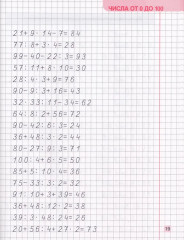 ЧИСЛА ОТ 0 ДО 100
21+9·14-7=84
77:8+3·4=28
99-40-22:3=93
57:11+8·10=30
28:4·3+9=76
90-9:3+16=43
32·33:11-34=62
64:8:2+56=72
90-42:6·3=24
36+48:3·2=44
80-27:9·3=71
100:4+6·5=50
85+5:10·4=36
75-33:3·2=32
91:10+3+39=46
36+48:12·2=38
39:3·48:24=26
20+56:4+27:2=73